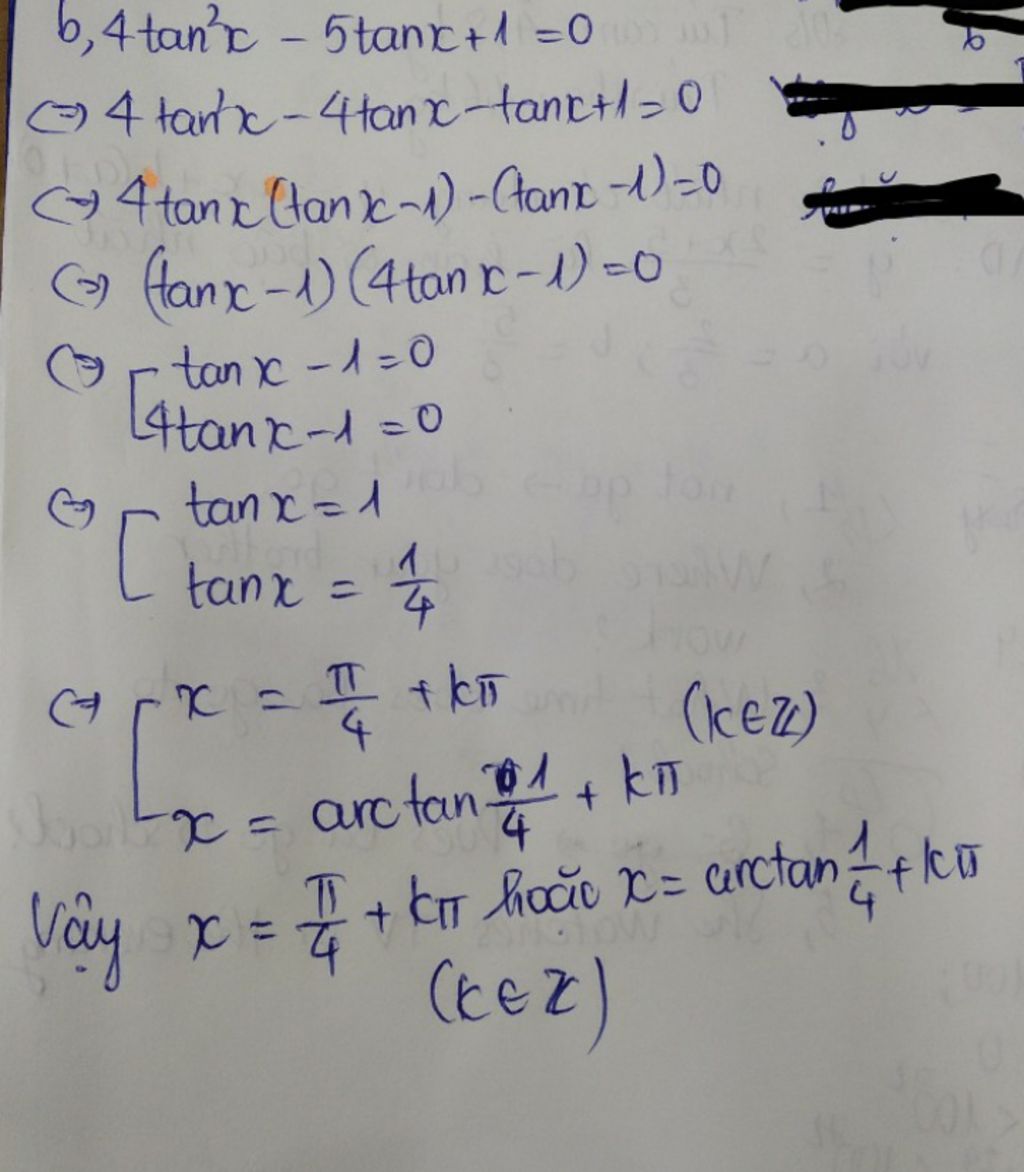 b, 4tan²x - 5tanx + 1 = 0
⇔ 4tan²x - 4tanx - tanx + 1 = 0
⇔ 4tanx(tanx - 1) - (tanx - 1) = 0
⇔ (tanx - 1)(4tanx - 1) = 0
⇔ [ tanx - 1 = 0
4tanx - 1 = 0
⇔ [ tanx = 1
tanx = 1/4
⇔ [ x = π/4 + kπ (k∈Z)
x = arctan 1/4 + kπ
Vậy x = π/4 + kπ hoặc x = arctan 1/4 + kπ
(k∈Z)